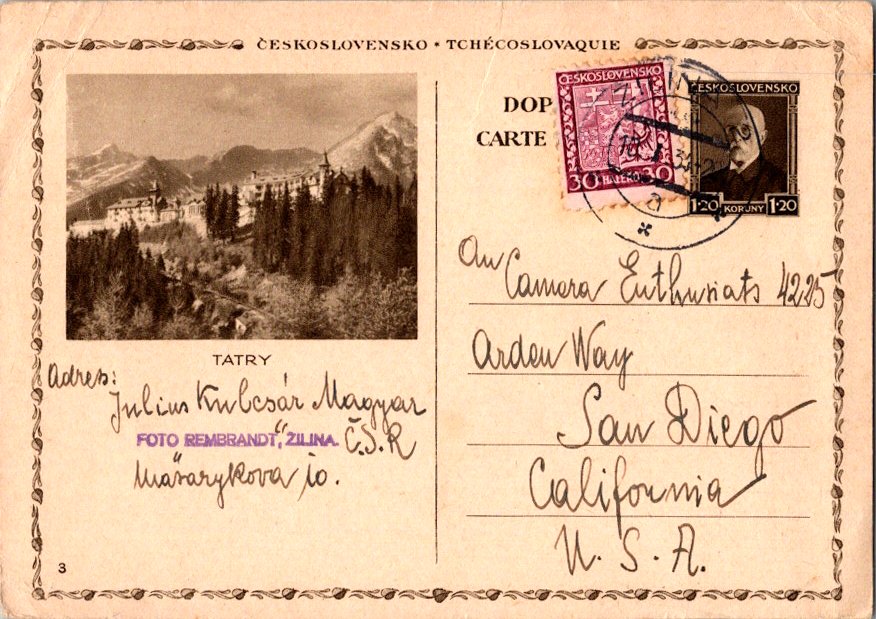 ČESKOSLOVENSKO • TCHÉCOSLOVAQUIE
TATRY
Adres:
Julius Kulcsár Magyar
FOTO REMBRANDT, ŽILINA. Č.S.R
Mašarykova 10.
3
DOP
CARTE
ČESKOSLOVENSKO
30 HALÉŘŮ 30
ŽILINA
a
ČESKOSLOVENSKO
1·20 KORUNY 1·20
An
Camera Enthusiats 4225
Arden Way
San Diego
California
U. S. A.